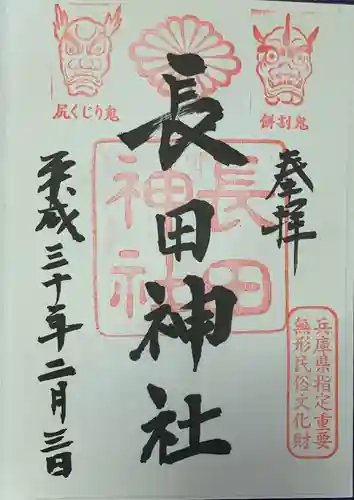 餅割鬼
尻くじり鬼
奉拝
長田神社
長田
神社
平成三十年二月三日
兵庫県指定重要
無形民俗文化財